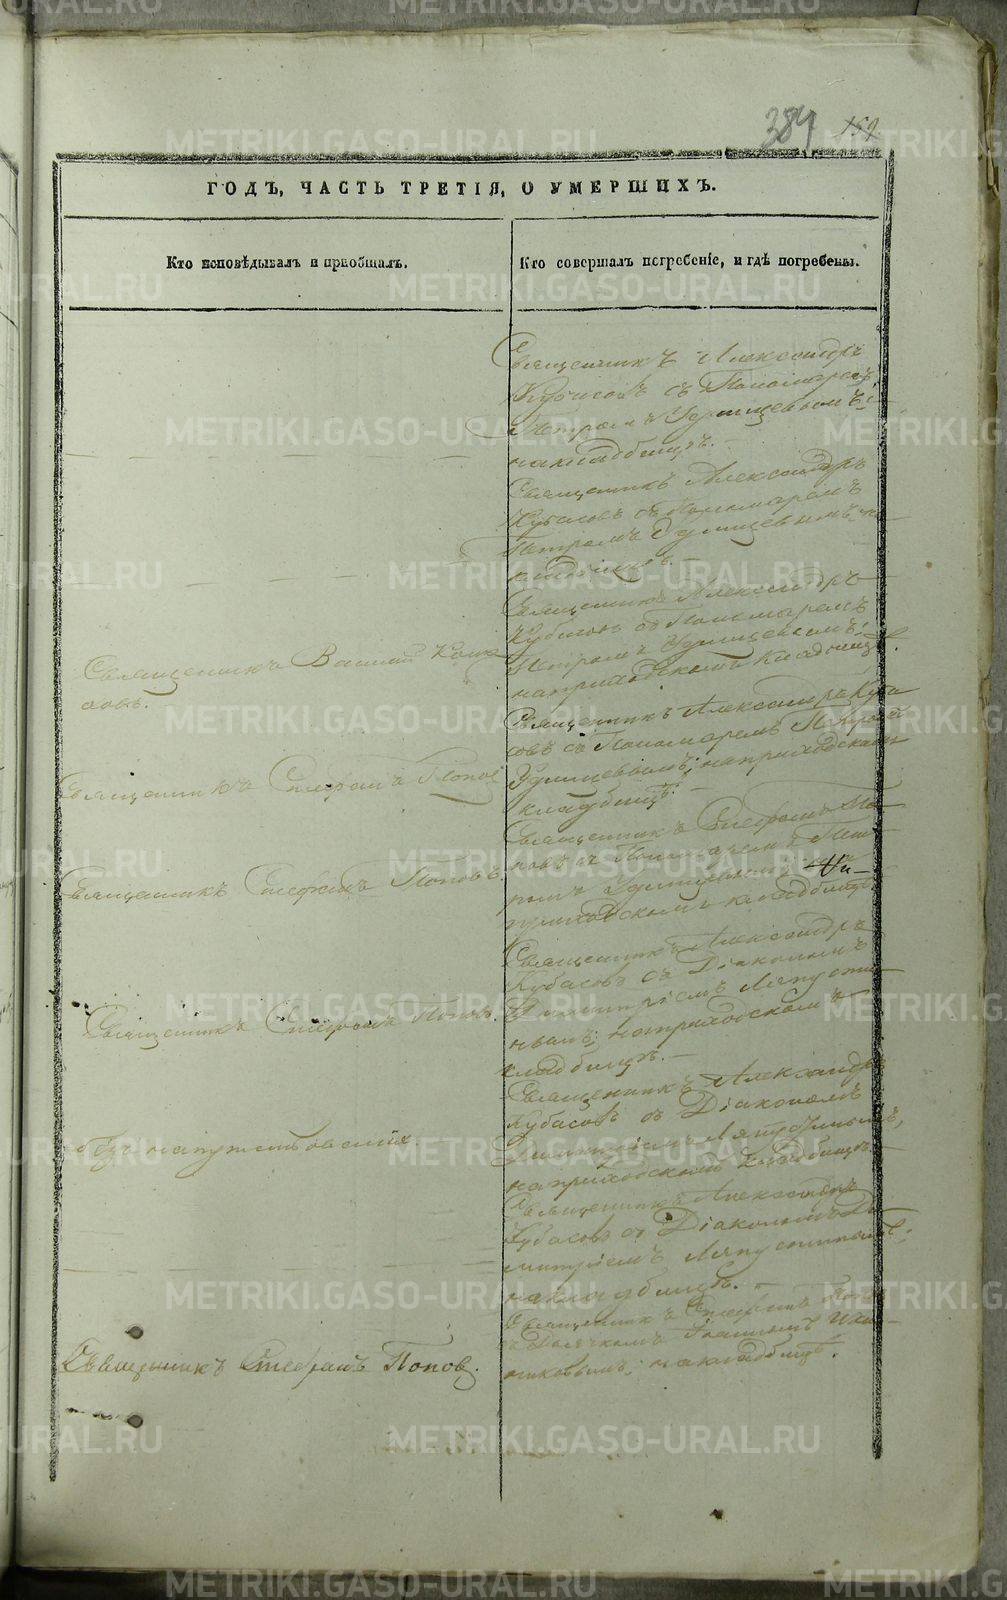 384 159
ГОДЪ, ЧАСТЬ ТРЕТІЯ, О УМЕРШИХЪ.
Кто исповѣдывалъ и пріобщалъ.
Кто совершалъ погребеніе, и гдѣ погребены.
Священникъ Александръ
Кубасовъ съ Пономаремъ
Петромъ Удинцевымъ;
на кладбищѣ.
Священникъ Александръ
Кубасовъ съ Пономаремъ
Петромъ Удинцевымъ; на
кладбищѣ.
Священникъ Василій
Священникъ Александръ
Кубасовъ съ Пономаремъ
Петромъ Удинцевымъ;
на приходскомъ кладбищѣ.
Священникъ Стефанъ Попов
Священникъ Александръ Куба
совъ съ Пономаремъ Петромъ
Удинцевымъ; на приходскомъ
кладбищѣ.
Священникъ Стефанъ Поповъ
Священникъ Стефанъ По
повъ съ Пономаремъ Пет
ромъ Удинцевымъ; на
приходскомъ кладбищѣ
Священникъ Стефанъ Поповъ.
Священникъ Александръ
Кубасовъ съ Діакономъ
Димитріемъ Ляпусти
нымъ; на приходскомъ
кладбищѣ.
безъ напутствованія
Священникъ Александръ
Кубасовъ съ Діакономъ
Димитріемъ
на приходскомъ кладбищѣ
Священникъ Александръ
Кубасовъ съ Діакономъ Ди
митріемъ Ляпустинымъ;
на кладбищѣ.
Священникъ Стефанъ Попов.
Священникъ Стефанъ Попо
въ Іоанномъ
на кладбищѣ.
METRIKI.GASO-URAL.RU